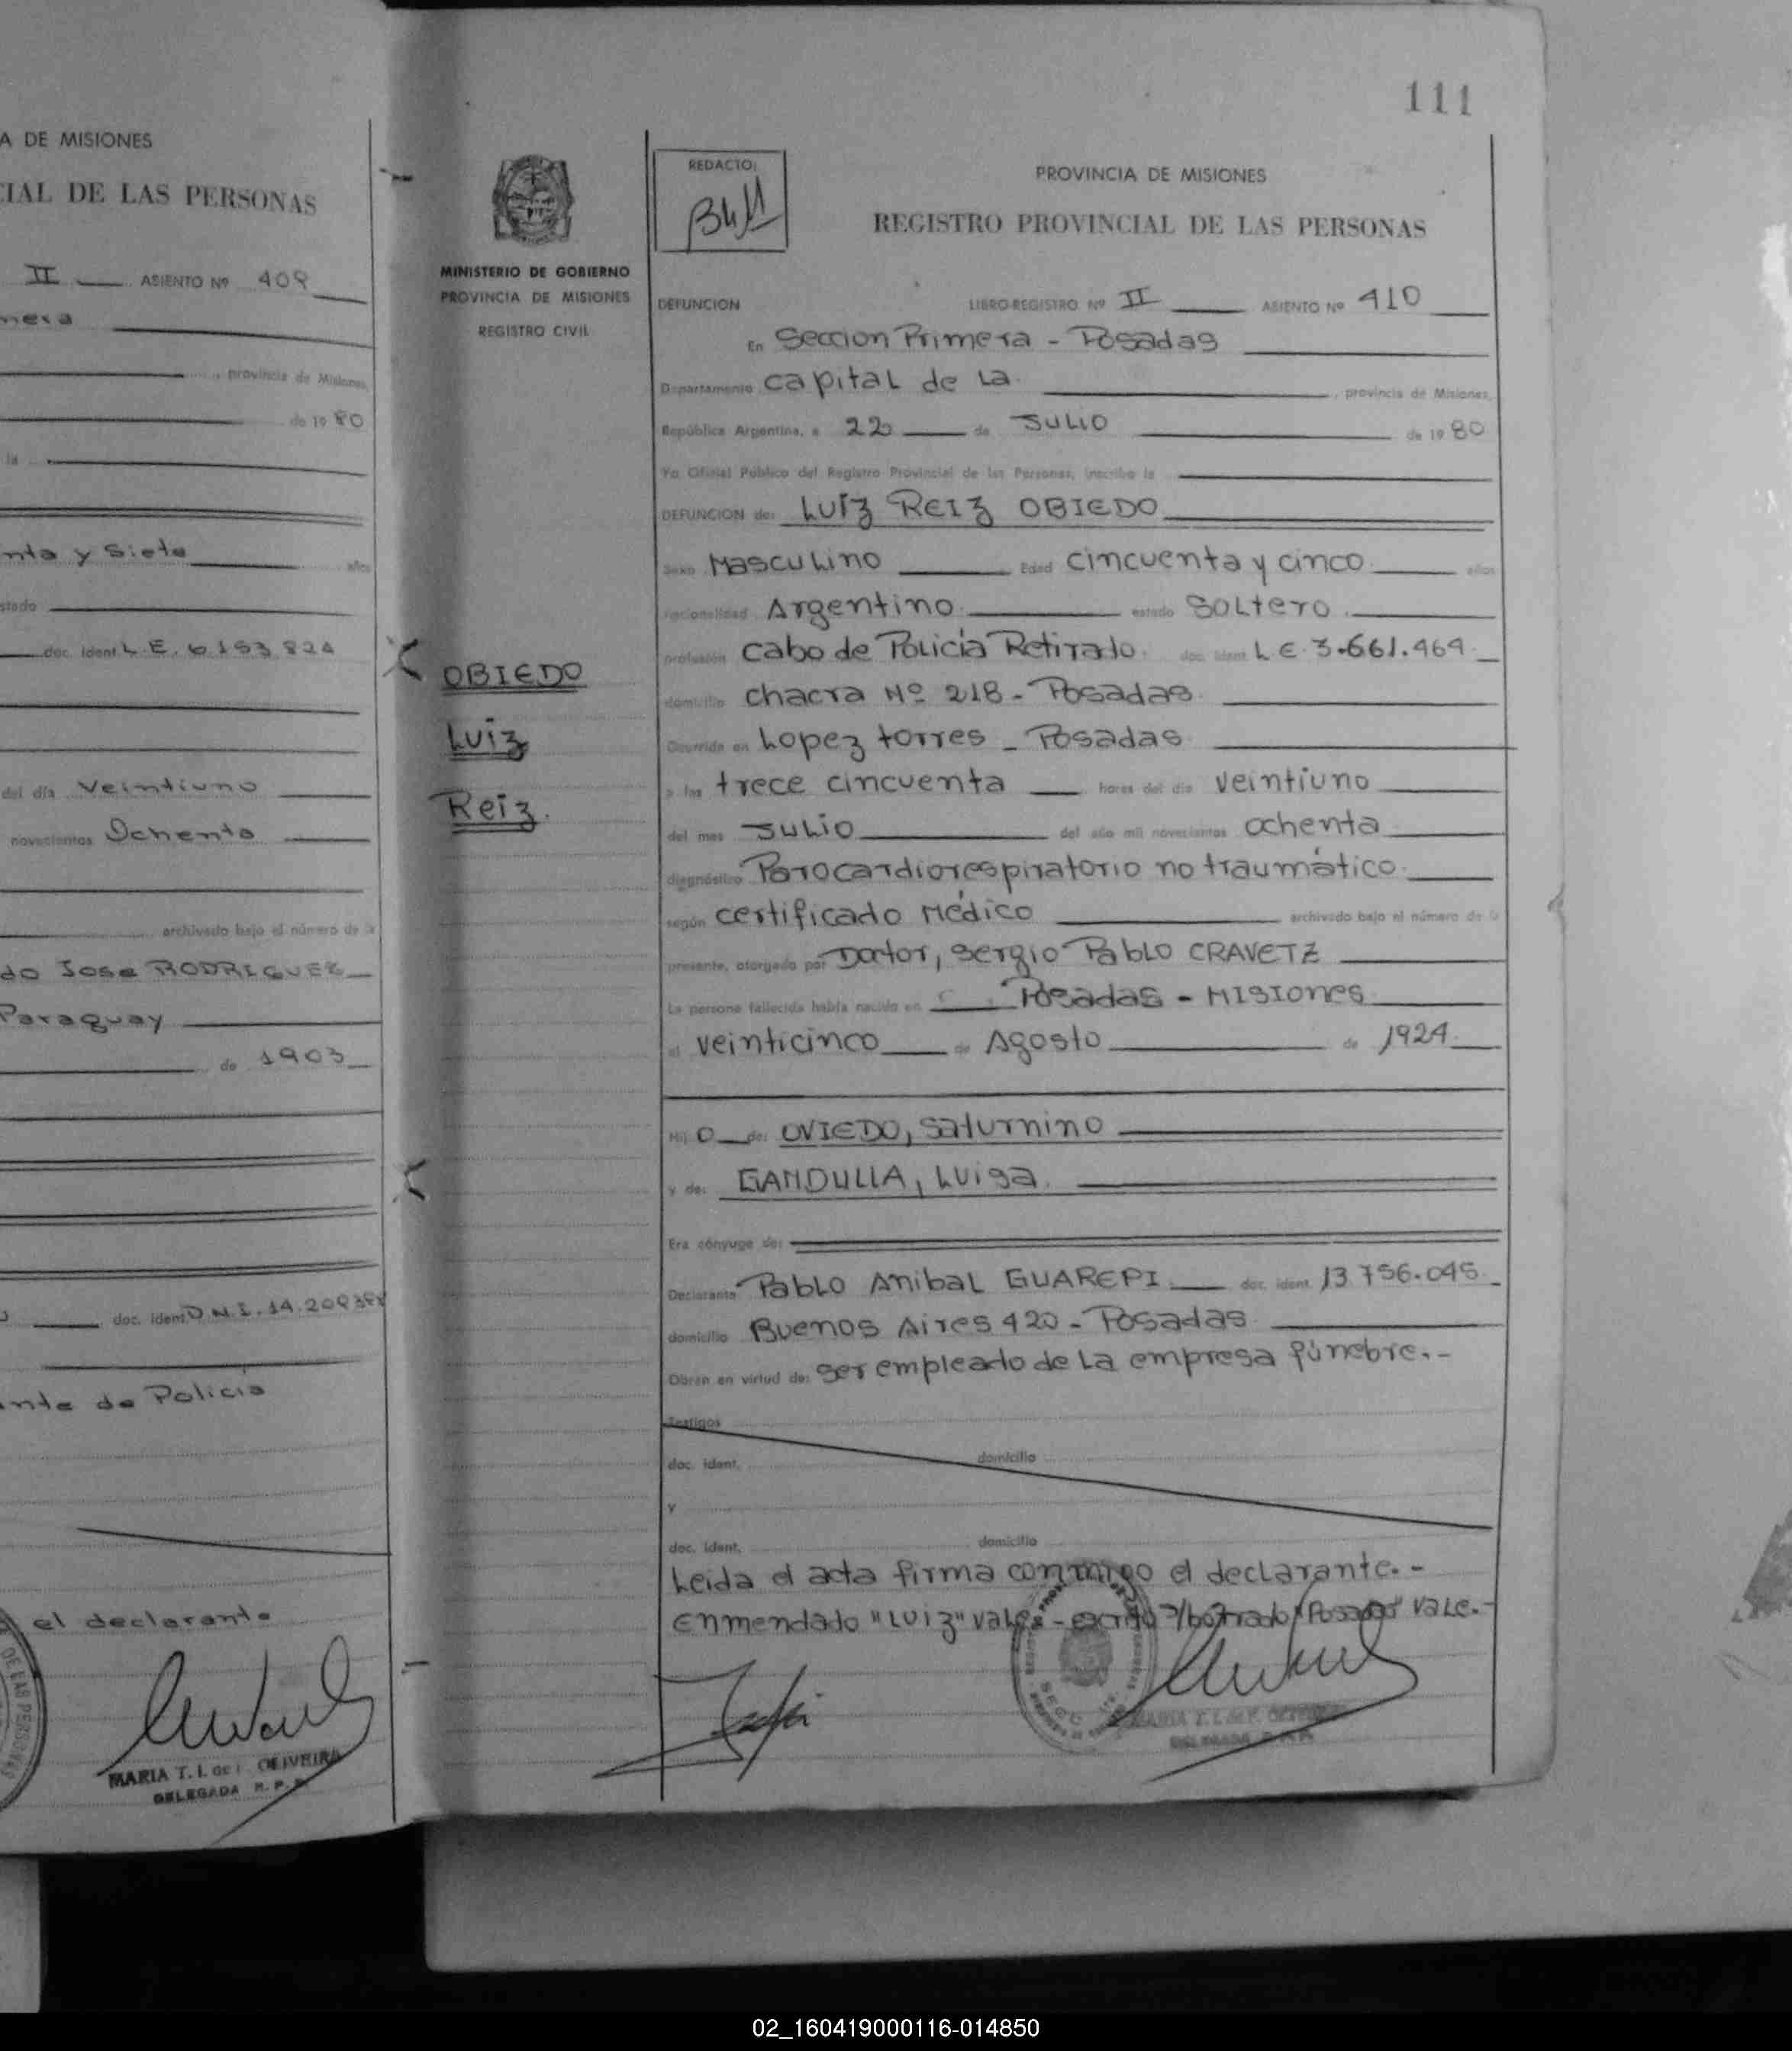 A DE MISIONES
CIAL DE LAS PERSONAS
II ASIENTO Nº 409
mera
, provincia de Misiones,
de 1980
la
nta y Siete años
stado
doc. ident. L.E. 6.153.824
del día Veintiuno
novecientos Ochenta
archivado bajo el número de la
do Jose RODRIGUEZ
Paraguay
de 1903
doc. ident D.N.I. 14.209.
nte de Policia
el declarante
DE LAS PERSONAS
MARIA T. I. de OLIVEIRA
DELEGADA R. P. P.
111
MINISTERIO DE GOBIERNO
PROVINCIA DE MISIONES
REGISTRO CIVIL
OBIEDO
Luiz
Reiz.
REDACTO:
PROVINCIA DE MISIONES
REGISTRO PROVINCIAL DE LAS PERSONAS
DEFUNCION LIBRO-REGISTRO Nº II ASIENTO Nº 410
En Seccion Primera - Posadas
Departamento Capital de La , provincia de Misiones,
República Argentina, a 22 de JULIO de 1980
Yo Oficial Público del Registro Provincial de las Personas, inscribo la
DEFUNCION de: LUIZ REIZ OBIEDO
Sexo Masculino Edad cincuenta y cinco años
nacionalidad Argentino. estado Soltero.
profesión Cabo de Policía Retirado. doc. ident. L.E. 3.661.469.
domicilio Chacra Nº 218 - Posadas.
Ocurrida en Lopez torres - Posadas
a las trece cincuenta horas del día veintiuno
del mes JULIO del año mil novecientos ochenta
diagnóstico Parocardiorespiratorio no traumático.
según certificado Médico archivado bajo el número de la
presente, otorgado por Doctor, Sergio Pablo CRAVETZ
La persona fallecida había nacido en Posadas - Misiones
el veinticinco de Agosto de 1924.
Hij o de: OVIEDO, Saturnino
y de: GANDULLA, Luisa.
Era cónyuge de:
Declarante Pablo Anibal GUAREPI doc. ident. 13.756.045.
domicilio Buenos Aires 420 - Posadas
Obran en virtud de: ser empleado de La empresa fúnebre.-
Testigos
doc. ident. domicilio
y
doc. ident. domicilio
Leida el acta firma conmigo el declarante.-
Enmendado "LUIZ" vale.- escrito s/borrado "Posadas" vale.-
MARIA T. I. de F. OLIVEIRA
DELEGADA R. P. P.
02_160419000116-014850